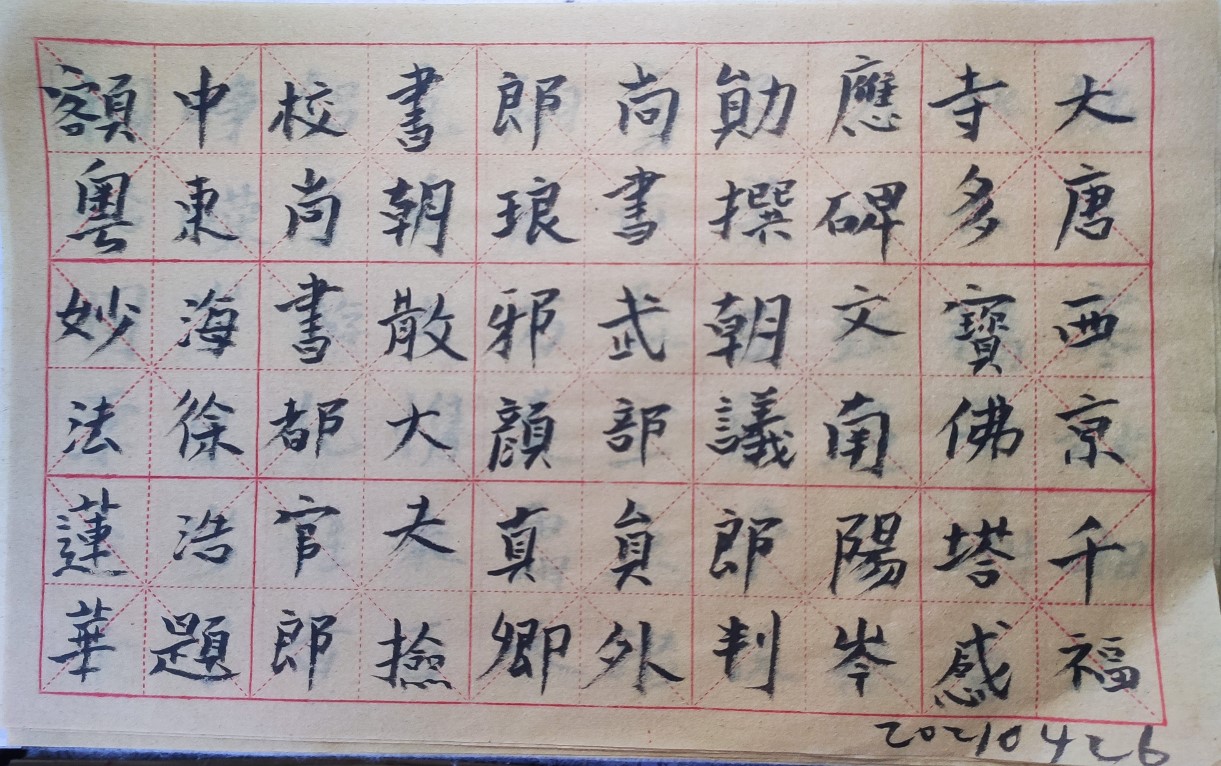 大唐西京千福
寺多寶佛塔感
應碑文南陽岑
勛撰朝議郎判
尚書武部員外
郎琅邪顏真卿
書朝散大夫撿
校尚書都官郎
中東海徐浩題
額粵妙法蓮華
20210426